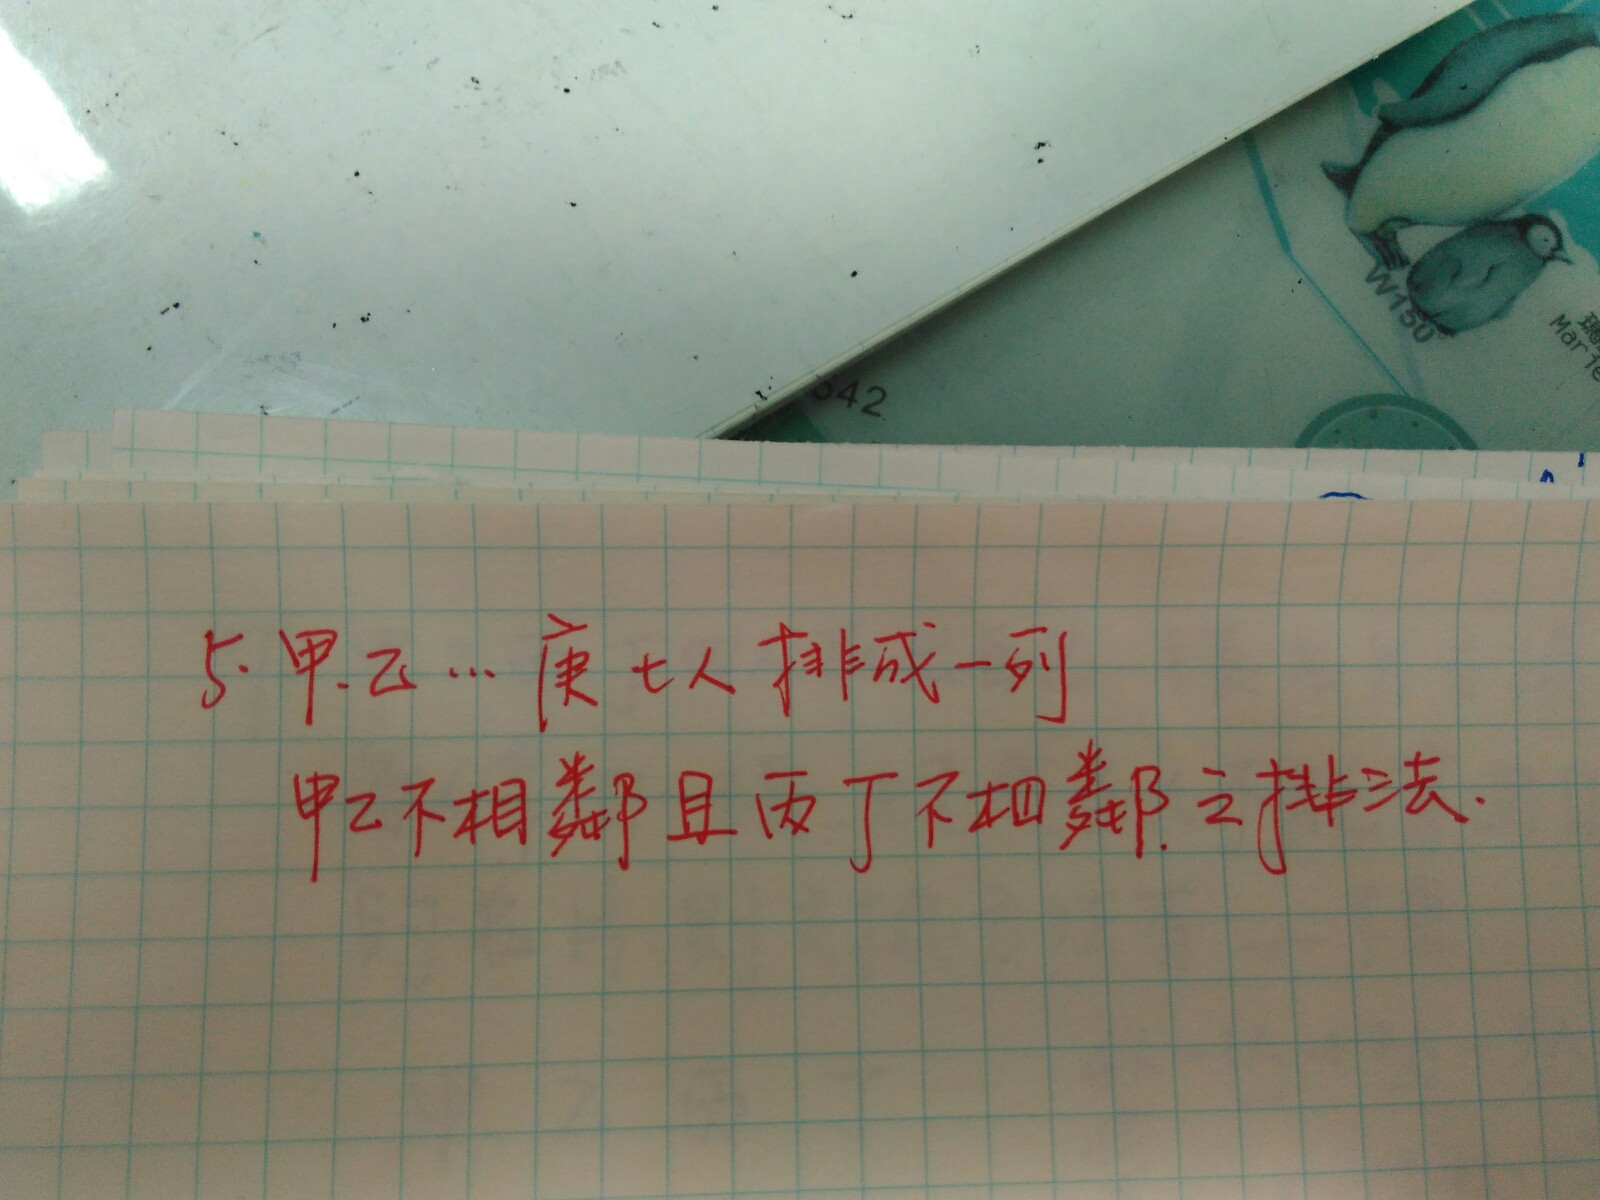 642
W150
Marie
5. 甲.乙…庚七人排成一列
甲乙不相鄰且丙丁不相鄰.之排法.